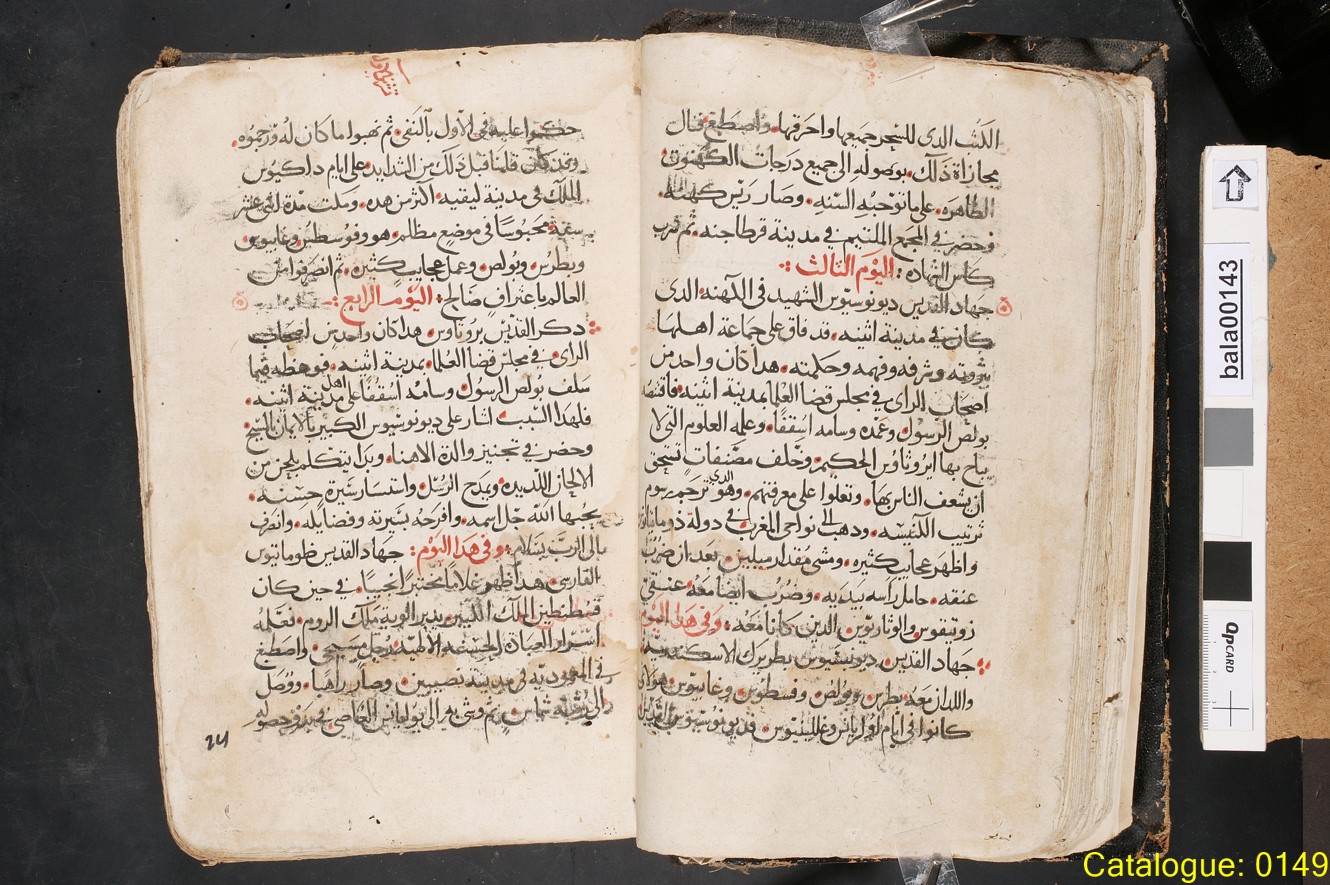 الكتب الدى للسحر جميعها واحرقها. واصطبغ فنال
مجازاة ذلك. بوصوله الى جميع درجات الكهنوت
الطاهره. على ما توجبه السنه. وصار ريس كهنه.
وحضر في المجمع الملتيم في مدينة قرطاجنه. ثم شرب
كاس الشهاده: اليوم الثالث
جهاد القديس ديونوسيوس الشهيد في الكهنه الدى
كان في مدينة اثينه. قد فاق على جماعة اهلها
بثروته وشرفه وفهمه وحكمته. هدا كان واحد من
اصحاب الراى في مجلس قضا العلما بمدينة اثينه. فاقتنصه
بولص الرسول وعمده وسامه اسقفا. وعلمه العلوم التي لا
يباح بها ايروثاوس الحكيم. وخلف مصنفات تستحق
ان يشغف الناس بها. وتعلوا على معرفتهم. وهو الدى ترجم رسوم
ترتيب الكنيسه. ودهب الى نواحي المغرب في دولة دومايانوس
واظهر عجايب كثيره. ومشي مقدار ميلين بعد ان ضرب
عنقه. حامل راسه بيديه. وضرب ايضا معه عنقي
الدين كانا معه: وفي هدا اليوم
جهاد القديس ديونيسيوس بطريرك الاسكندريه
واللدان معه بطرس وبولص وفسطوس وغاييوس هولاى
كانوا في ايام
حكموا عليه في الاول بالنفي. ثم نهبوا ما كان له ورجموه.
وقد كان قلنا قبل دلك من الشدايد على ايام داكيوس
الملك في مدينة ليقيه. اكثر من هده. وملث مدة اثني عشر
سنه محبوسا في موضع مظلم. هو وفوسطس وغاييوس
وبطرس وبولص. وعمل عجايب كثيره. ثم انصرفوا من
العالم باعتراف صالح: اليوم الرابع
دكر القديس يروثاوس. هدا كان واحد من اصحاب
الراى. في مجلس قضا العلما. بمدينة اثينه. فوعظه فيما
سلف بولص الرسول وسامه اسقفا على اهل مدينة اثينه.
فلهدا السبب اشار على ديونوسيوس الكبير بالايمان بالمسيح
وحضر في تجنيز والدة الاهنا. وبدا يتكلم بلحن من
الالحان اللديده. ويمدح الرسل واستسار سيرة حسنه.
يحبها الله جل اسمه. وافرحه بسيرته وفضايله. وانصرف
الى الرب بسلام: وفي هدا اليوم: جهاد القديس ظومانيوس
الفارسي. هدا ظهر غلاما مختبرا نجيبا. في حين كان
قسطنطين الملك الكبير يدبر الوية ملك الروم. فعلمه
اسرار العباده الحسنه الالهيه رجل مسيحي. واصطبغ
في المعموديه في مدينة نصيبين. وصار راهبا. ووصل
الى درجة شماس. ثم وشي به الى يوليانس العاصي.